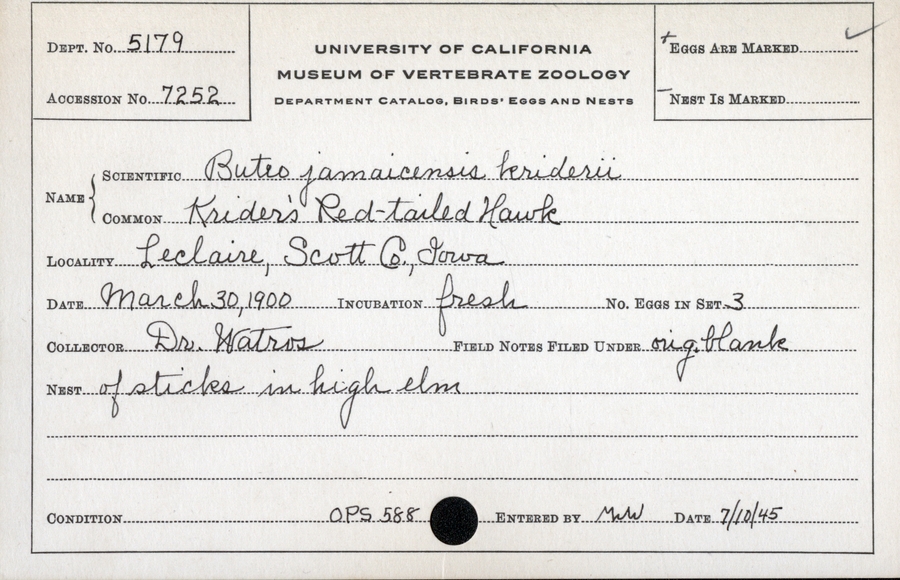 DEPT. No. 5179
ACCESSION No. 7252
UNIVERSITY OF CALIFORNIA
MUSEUM OF VERTEBRATE ZOOLOGY
DEPARTMENT CATALOG, BIRDS' EGGS AND NESTS
+ EGGS ARE MARKED ✓
- NEST IS MARKED
NAME { SCIENTIFIC Buteo jamaicensis kriderii
COMMON Krider's Red-tailed Hawk
LOCALITY Leclaire, Scott Co., Iowa
DATE March 30, 1900 INCUBATION fresh No. EGGS IN SET 3
COLLECTOR Dr. Watros FIELD NOTES FILED UNDER orig. blank
NEST of sticks in high elm
CONDITION OPS 588 ENTERED BY DATE 7/10/45